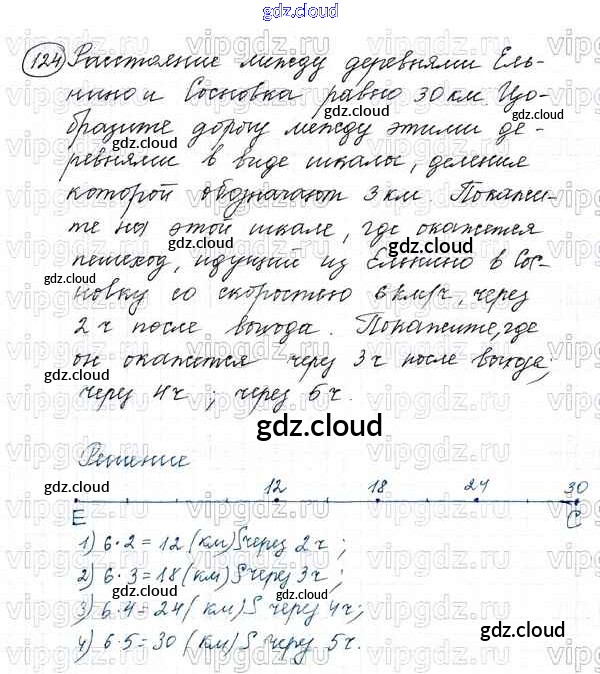 gdz.cloud
124 Расстояние между деревнями Ель-
нино и Сосновка равно 30 км. Изо-
бразите дорогу между этими де-
ревнями в виде шкалы, деления
которой обозначают 3 км. Покажи-
те на этой шкале, где окажется
пешеход, идущий из Ельнино в Сос-
новку со скоростью 6 км/ч, через
2 ч после выхода. Покажите, где
он окажется через 3 ч после выхода;
через 4 ч ; через 5 ч.
gdz.cloud
Решение
12 18 24 30
Е С
1) 6·2 = 12 (км) S через 2 ч ;
2) 6·3 = 18 (км) S через 3 ч ;
3) 6·4 = 24 (км) S через 4 ч;
4) 6·5 = 30 (км) S через 5 ч.
gdz.cloud